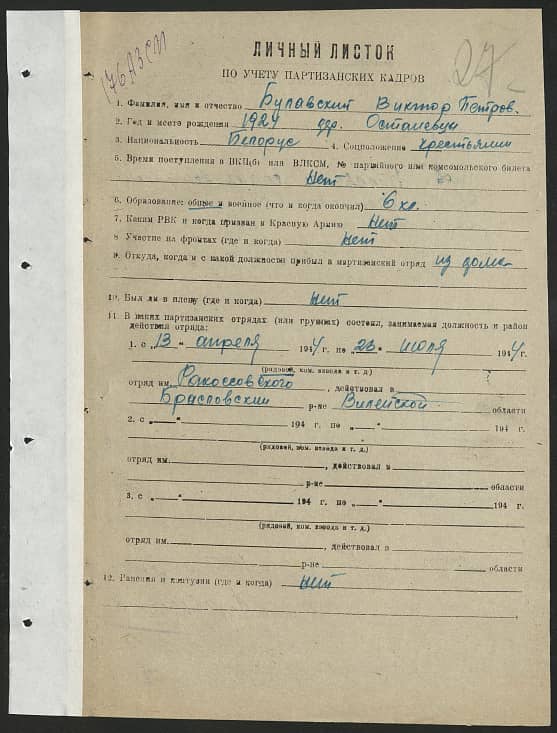 176АЗСМ
27
ЛИЧНЫЙ ЛИСТОК
ПО УЧЕТУ ПАРТИЗАНСКИХ КАДРОВ
1. Фамилия, имя и отчество Булавский Виктор Петров.
2. Год и место рождения 1924 дер. Осталевцы
3. Национальность Белорус 4. Соцположение крестьянин
5. Время поступления в ВКП(б) или ВЛКСМ, № партийного или комсомольского билета
Нет
6. Образование: общее и военное (что и когда окончил) 6 кл.
7. Каким РВК и когда призван в Красную Армию Нет
8. Участие на фронтах (где и когда) Нет
9. Откуда, когда и с какой должности прибыл в партизанский отряд из дома
10. Был ли в плену (где и когда) Нет
11. В каких партизанских отрядах (или группах) состоял, занимаемая должность и район
действия отряда:
1. с "13" апреля 1944 г. по "23" июля 1944 г.
(рядовой, ком. взвода и т. д.)
отряд им. Рокоссовского, действовал в
Брасловский р-не Вилейской области
2. с " " 194 г. по " " 194 г.
(рядовой, ком. взвода и т. д.)
отряд им. , действовал в
р-не области
3. с " " 194 г. по " " 194 г.
(рядовой, ком. взвода и т. д.)
отряд им. , действовал в
р-не области
12. Ранения и контузии (где и когда) Нет